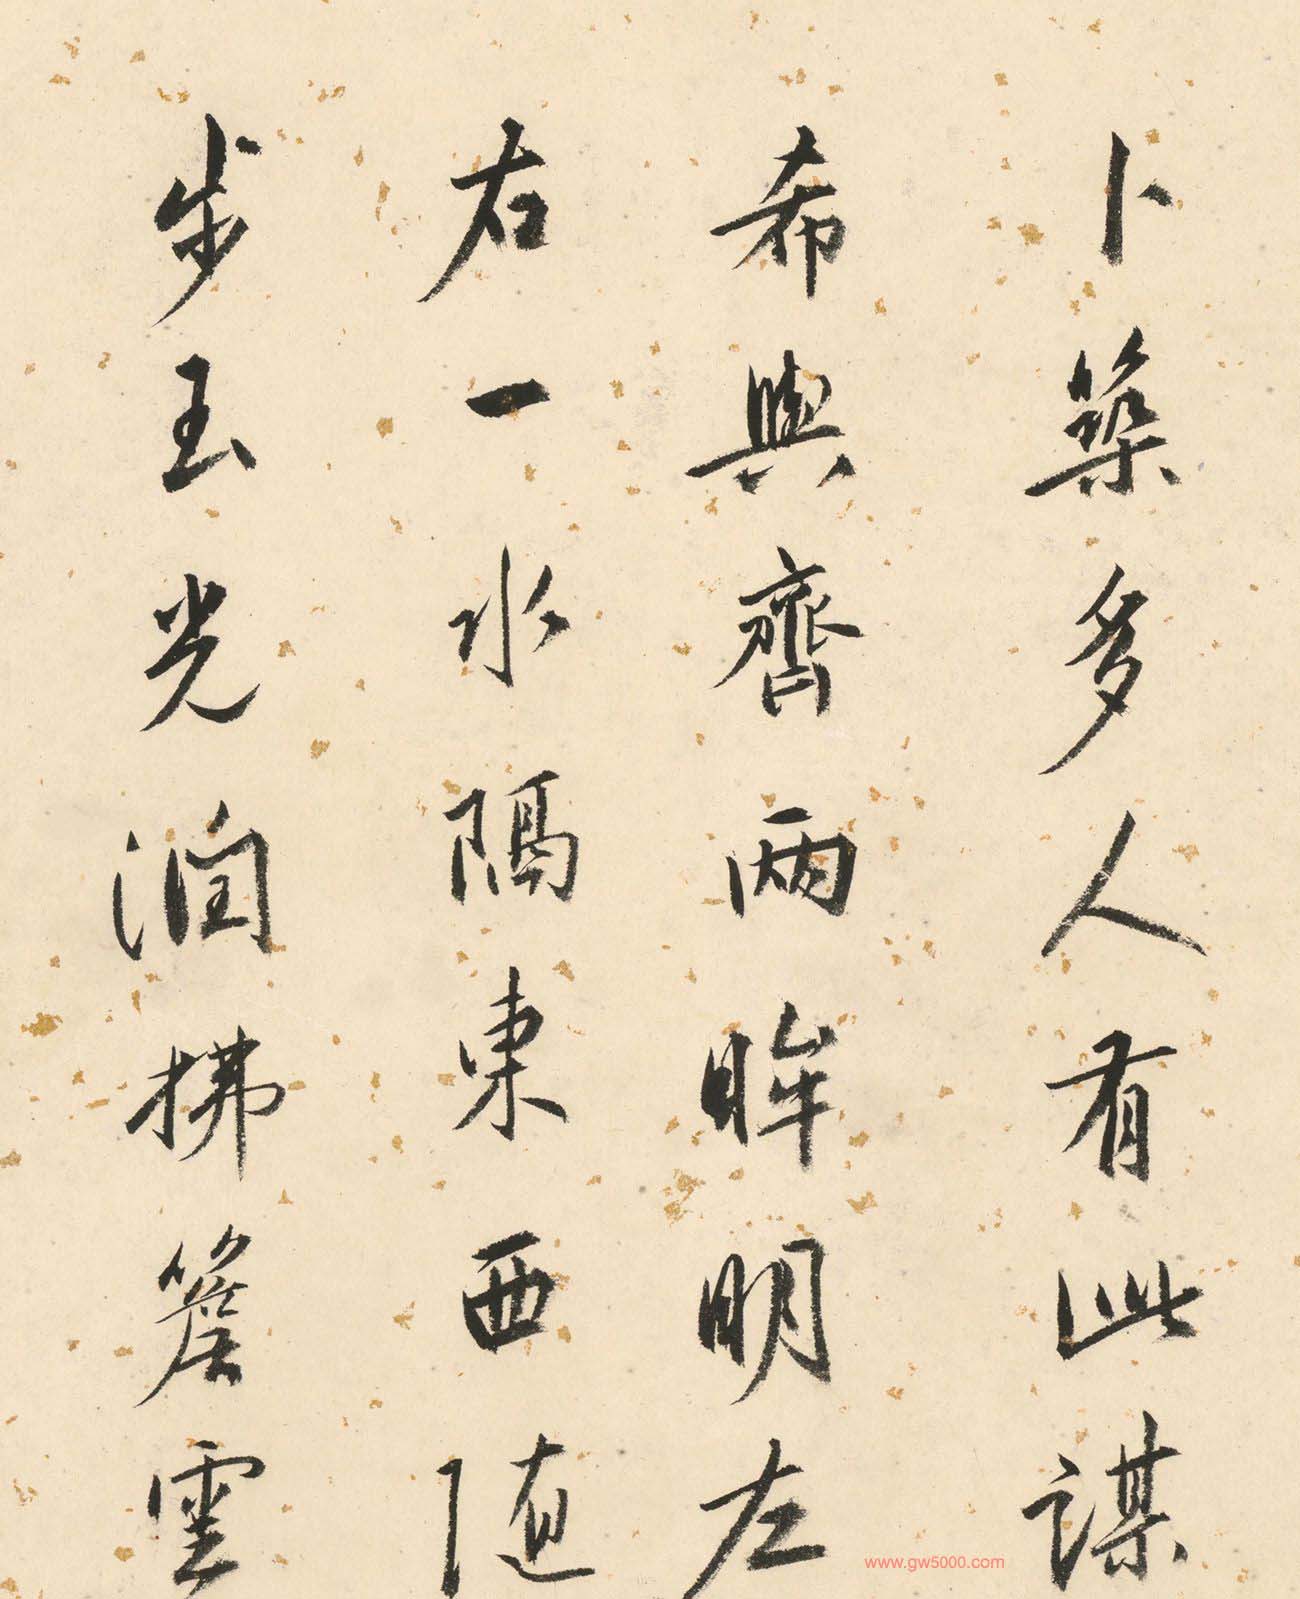 卜築多人有此謀
希與齊兩眸明左
右一水隔東西随
步玉光潤拂簷雲
www.gw5000.com